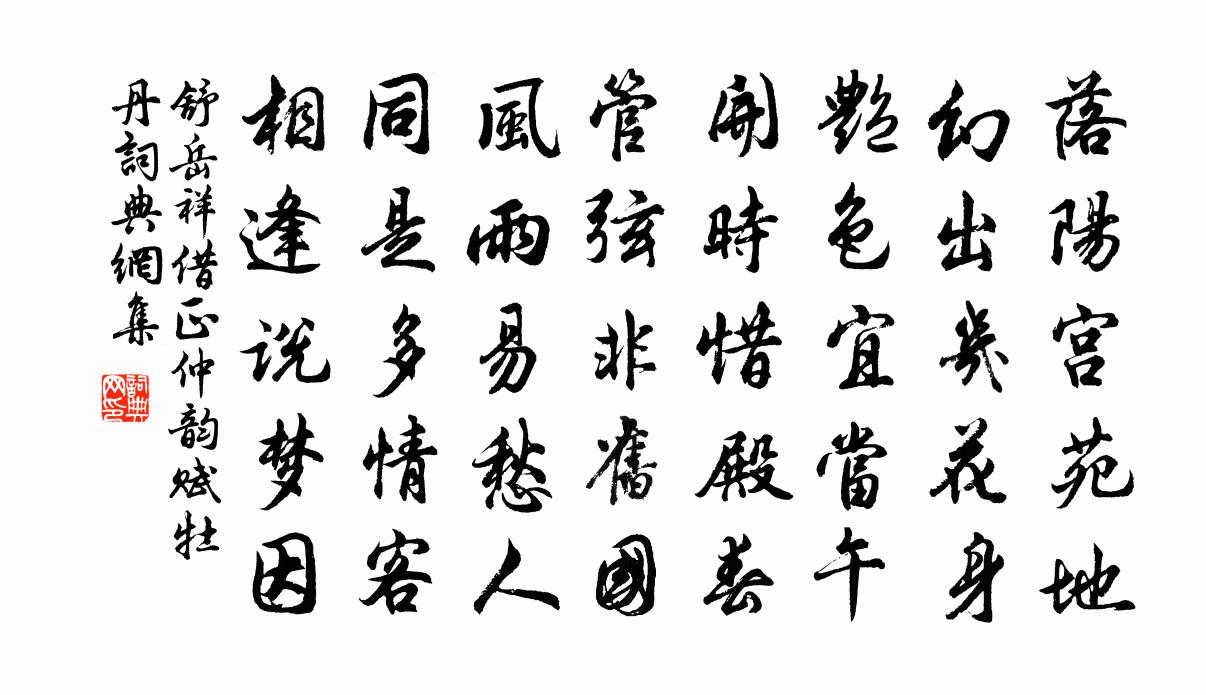 落陽宮苑地
幻出幾花身
艷色宜當午
開時惜殿春
管弦非舊國
風雨易愁人
同是多情客
相逢説梦因
舒岳祥借正仲韵赋牡
丹詞典網集
詞典网印